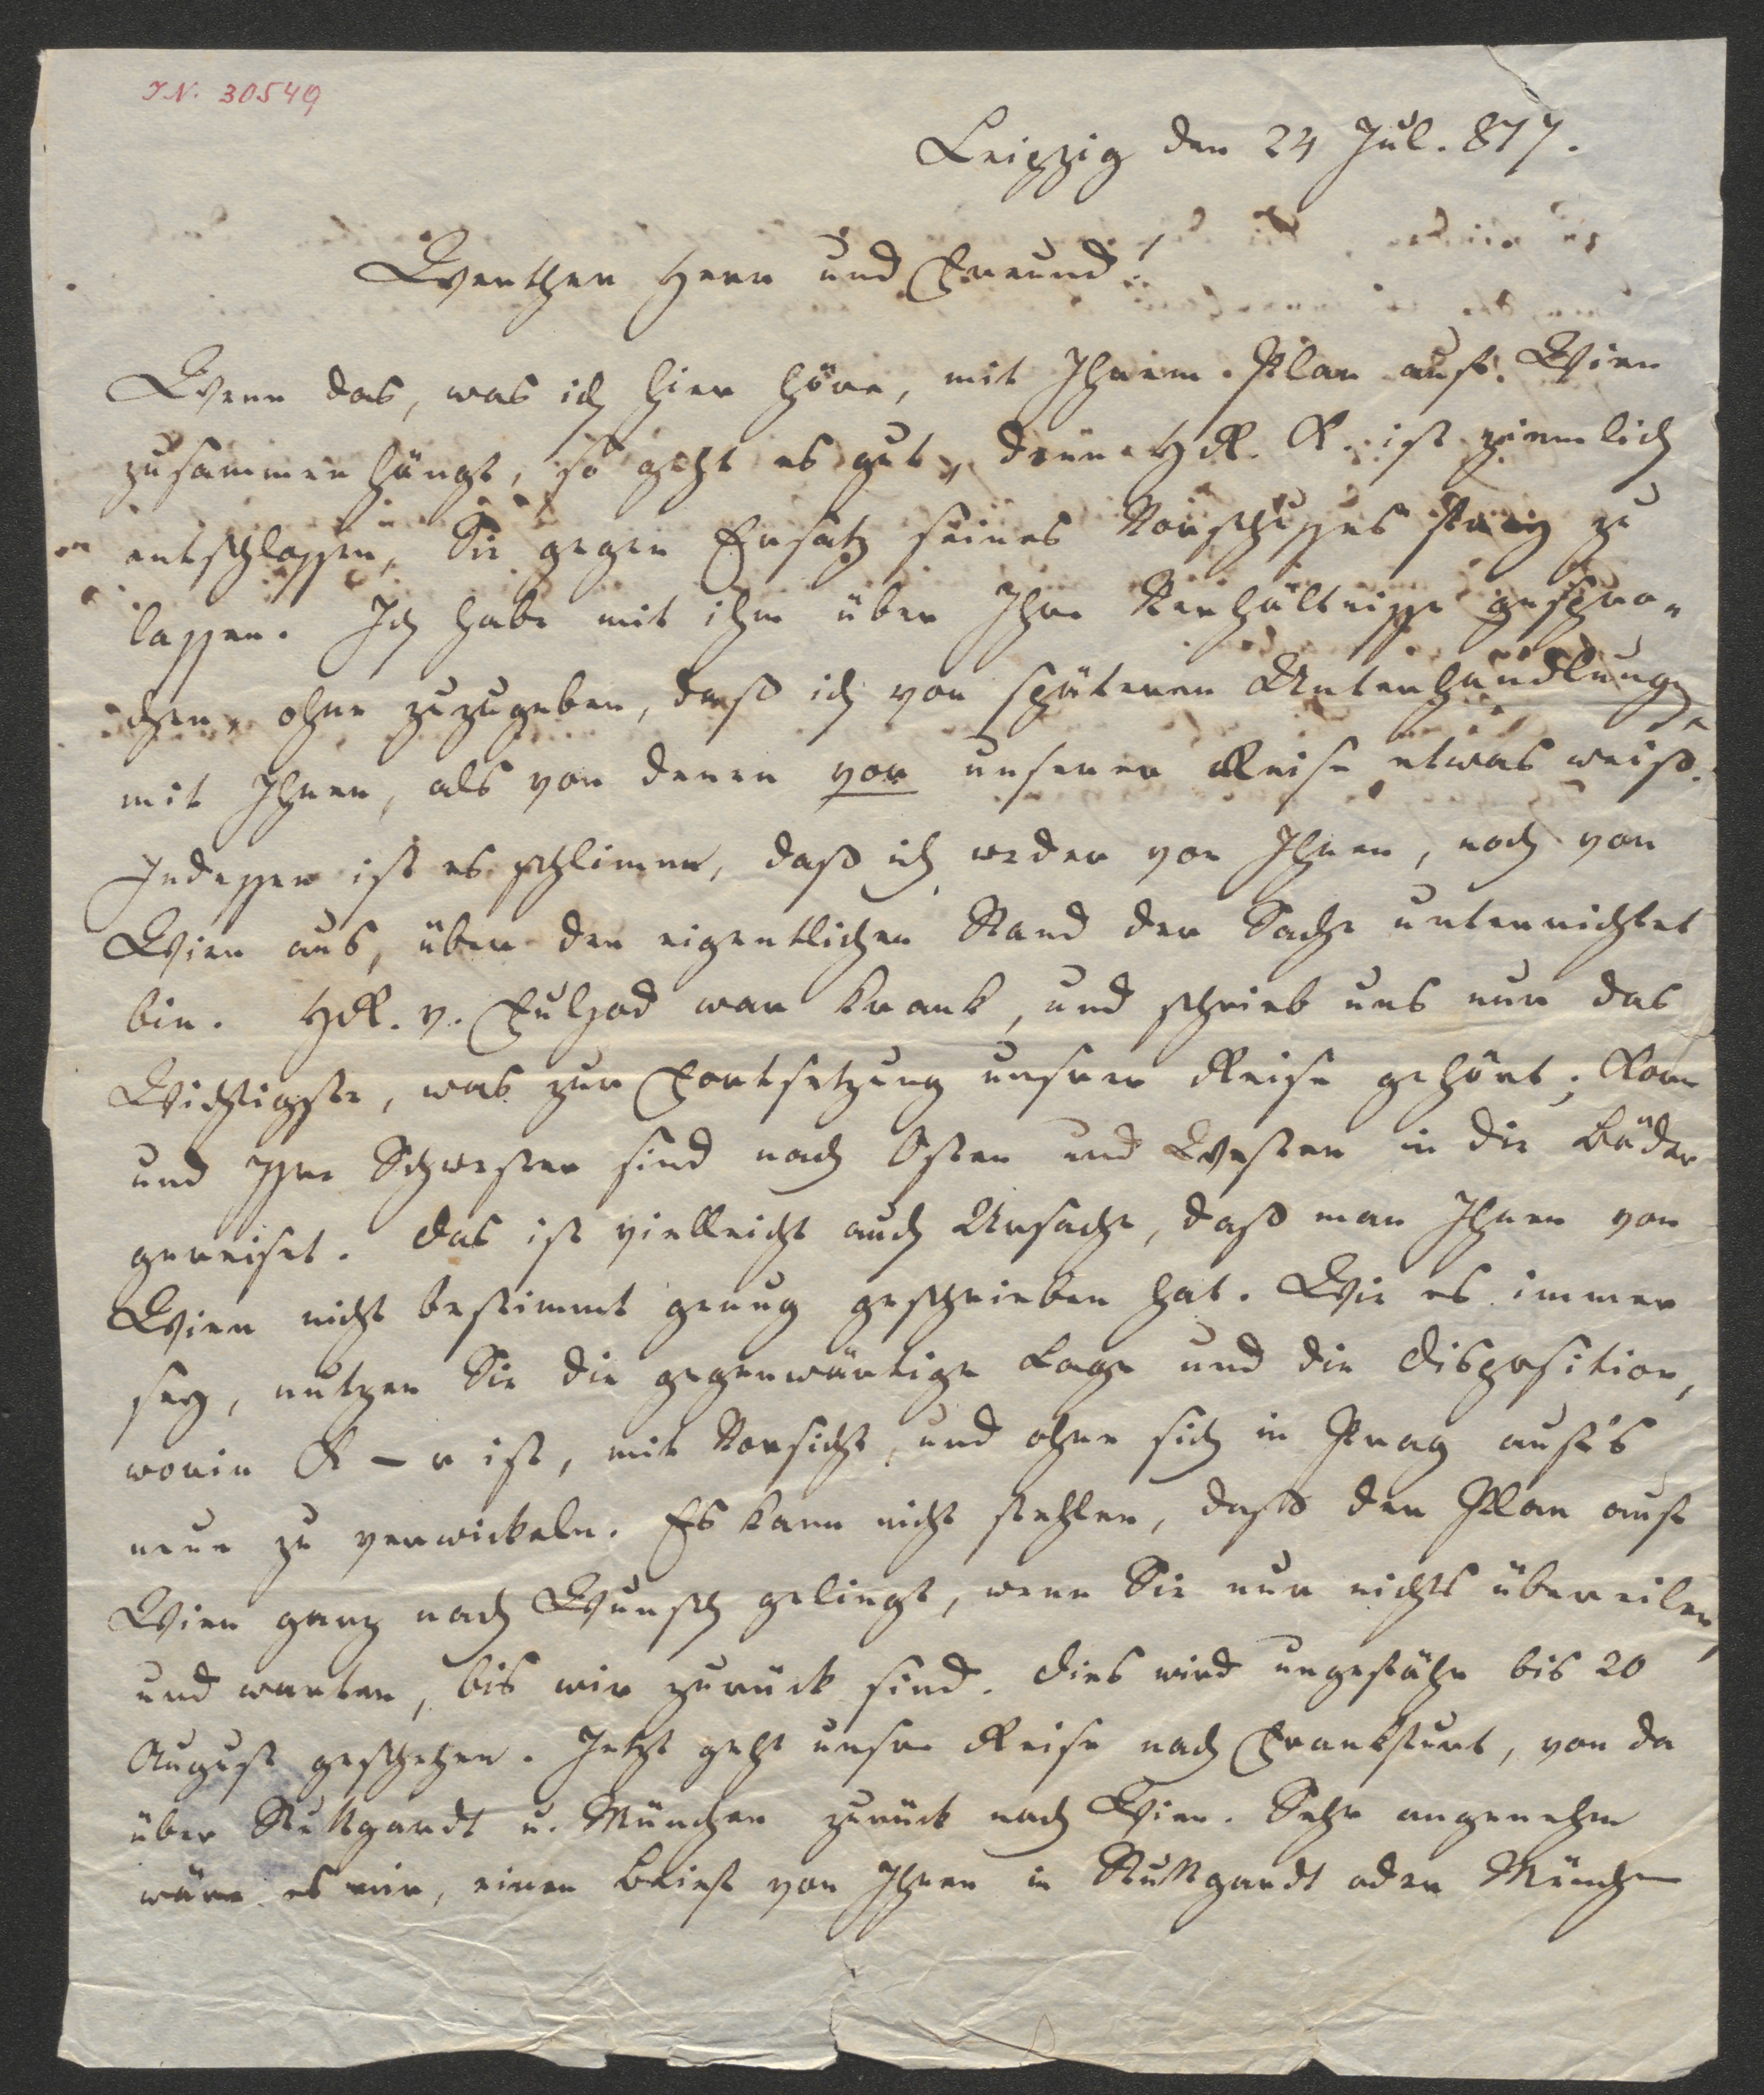 IN. 30549
Leipzig den 24 Jul. 817.
Werther Herr und Freund!
Wenn das, was ich hier höre, mit Ihrem Plan auf Wien
zusammen hängt, so geht es gut, denn HR. K. ist ziemlich
entschlossen, Sie gegen Ersatz seines Vorschusses frey zu
lassen. Ich habe mit ihm über Ihre Verhältnisse gespro-
chen, ohne zuzugeben, daß ich von späteren Unterhandlungen
mit Ihnen, als von denen vor unserer Reise etwas weiß.
Indessen ist es schlimm, daß ich weder von Ihnen, noch von
Wien aus, über den eigentlichen Stand der Sache unterrichtet
bin. HR. v. Fuljod war krank, und schrieb uns nur das
Wichtigste, was zur Fortsetzung unsrer Reise gehört; Korn
und Ihre Schwester sind nach Osten und Westen in die Bäder
gereiset. Das ist vielleicht auch Ursache, daß man Ihnen von
Wien nicht bestimmt genug geschrieben hat. Wie es immer
sey, nutzen Sie die gegenwärtige Lage und die Disposition,
worin K – r ist, mit Vorsicht, und ohne sich in Prag auf's
neue zu verwickeln. Es kann nicht fehlen, daß der Plan auf
Wien ganz nach Wunsch gelingt, wenn Sie nur nichts übereilen,
und warten, bis wir zurück sind. Dies wird ungefähr bis 20
August geschehen. Jetzt geht unsre Reise nach Frankfurt, von da
über Stuttgardt u. München zurück nach Wien. Sehr angenehm
wäre es mir, einen Brief von Ihnen in Stuttgardt oder München